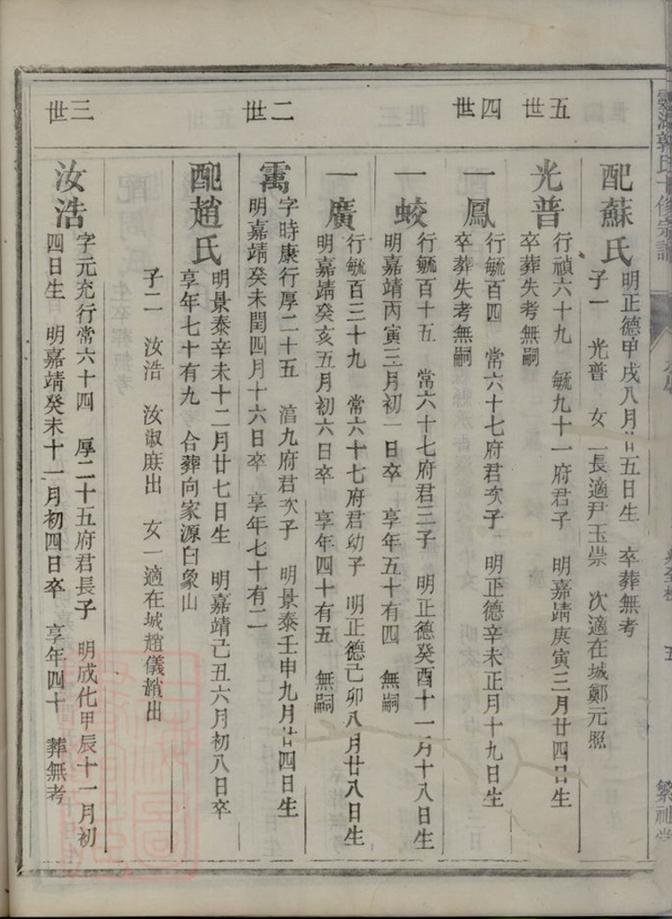 五世
四世
二世
三世
配蘇氏
明正德甲戌八月廿五日生 卒葬無考
子一 光普 女二長適尹玉崇 次適在城鄭元照
光普
行禎六十九 毓九十一府君子 明嘉靖庚寅三月廿四日生
卒葬失考無嗣
一鳳
行毓百四 常六十七府君次子 明正德辛未正月十九日生
卒葬失考無嗣
一蛟
行毓百十五 常六十七府君三子 明正德癸酉十一月十八日生
明嘉靖丙寅三月初一日卒 享年五十有四 無嗣
一廣
行毓百三十九 常六十七府君幼子 明正德己卯八月廿八日生
明嘉靖癸亥五月初六日卒 享年四十有五 無嗣
字時康行厚二十五 湻九府君次子 明景泰壬申九月廿四日生
明嘉靖癸未閏四月十六日卒 享年七十有二
配趙氏
明景泰辛未十二月廿七日生 明嘉靖己丑六月初八日卒
享年七十有九 合葬向家源白象山
子二 汝浩 汝淑庶出 女一適在城趙儀 出
汝浩
字元充行常六十四 厚二十五府君長子 明成化甲辰十一月初
四日生 明嘉靖癸未十一月初四日卒 享年四十 葬無考
五